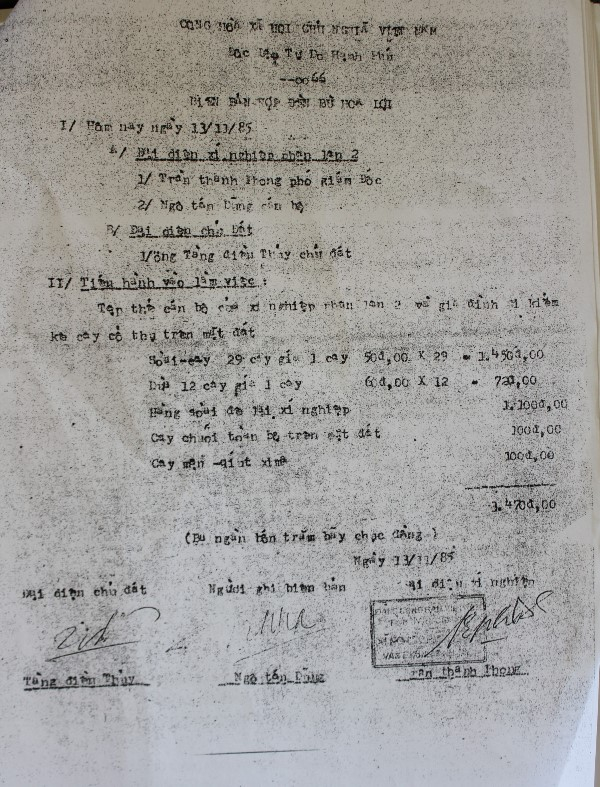 CỘNG HÒA XÃ HỘI CHỦ NGHĨA VIỆT NAM
Độc Lập Tự Do Hạnh Phúc
--oo66
BIÊN BẢN HỢP ĐỀN BÙ HOA LỢI
I/ Hôm nay ngày 13/11/85
A/ Đại diện xí nghiệp phân lân 2
1/ Trần thanh Phong phó giám Đốc
2/ Ngô tấn Dũng cán bộ
B/ Đại diện chủ Đất
1/ông Tăng điền Thủy chủ đất
II/ Tiến hành vào làm việc :
Tập thể cán bộ của xí nghiệp phân lân 2 và gia đình đi kiểm
kê cây cỏ thụ trên mặt đất
Soài-cây 29 cây giá 1 cây 50đ,00 X 29 = 1.450đ,00
Dừa 12 cây giá 1 cây 60đ,00 X 12 = 720,00
Hàng soài để lại xí nghiệp 1.100đ,00
Cây chuối toàn bộ trên mặt đất 100đ,00
Cây mận 100đ,00
3.470đ,00
(Ba ngàn bốn trăm bảy chục đồng )
Ngày 13/11/85
Đại diện chủ đất Người ghi biên bản Đại diện xí nghiệp
Tăng điền Thủy Ngô tấn Dũng Trần thanh Phong